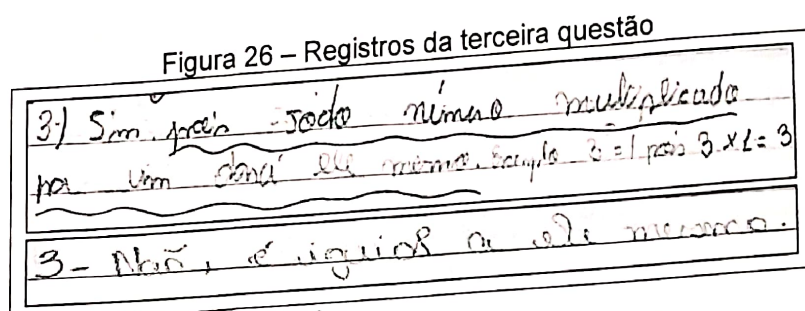 Figura 26 – Registros da terceira questão
3-) Sim, pois todo número multiplicado
por um dará ele mesmo. Exemplo 3 = 1 pois 3 x 1 = 3
3- Não, é iguios a ele mesmo.